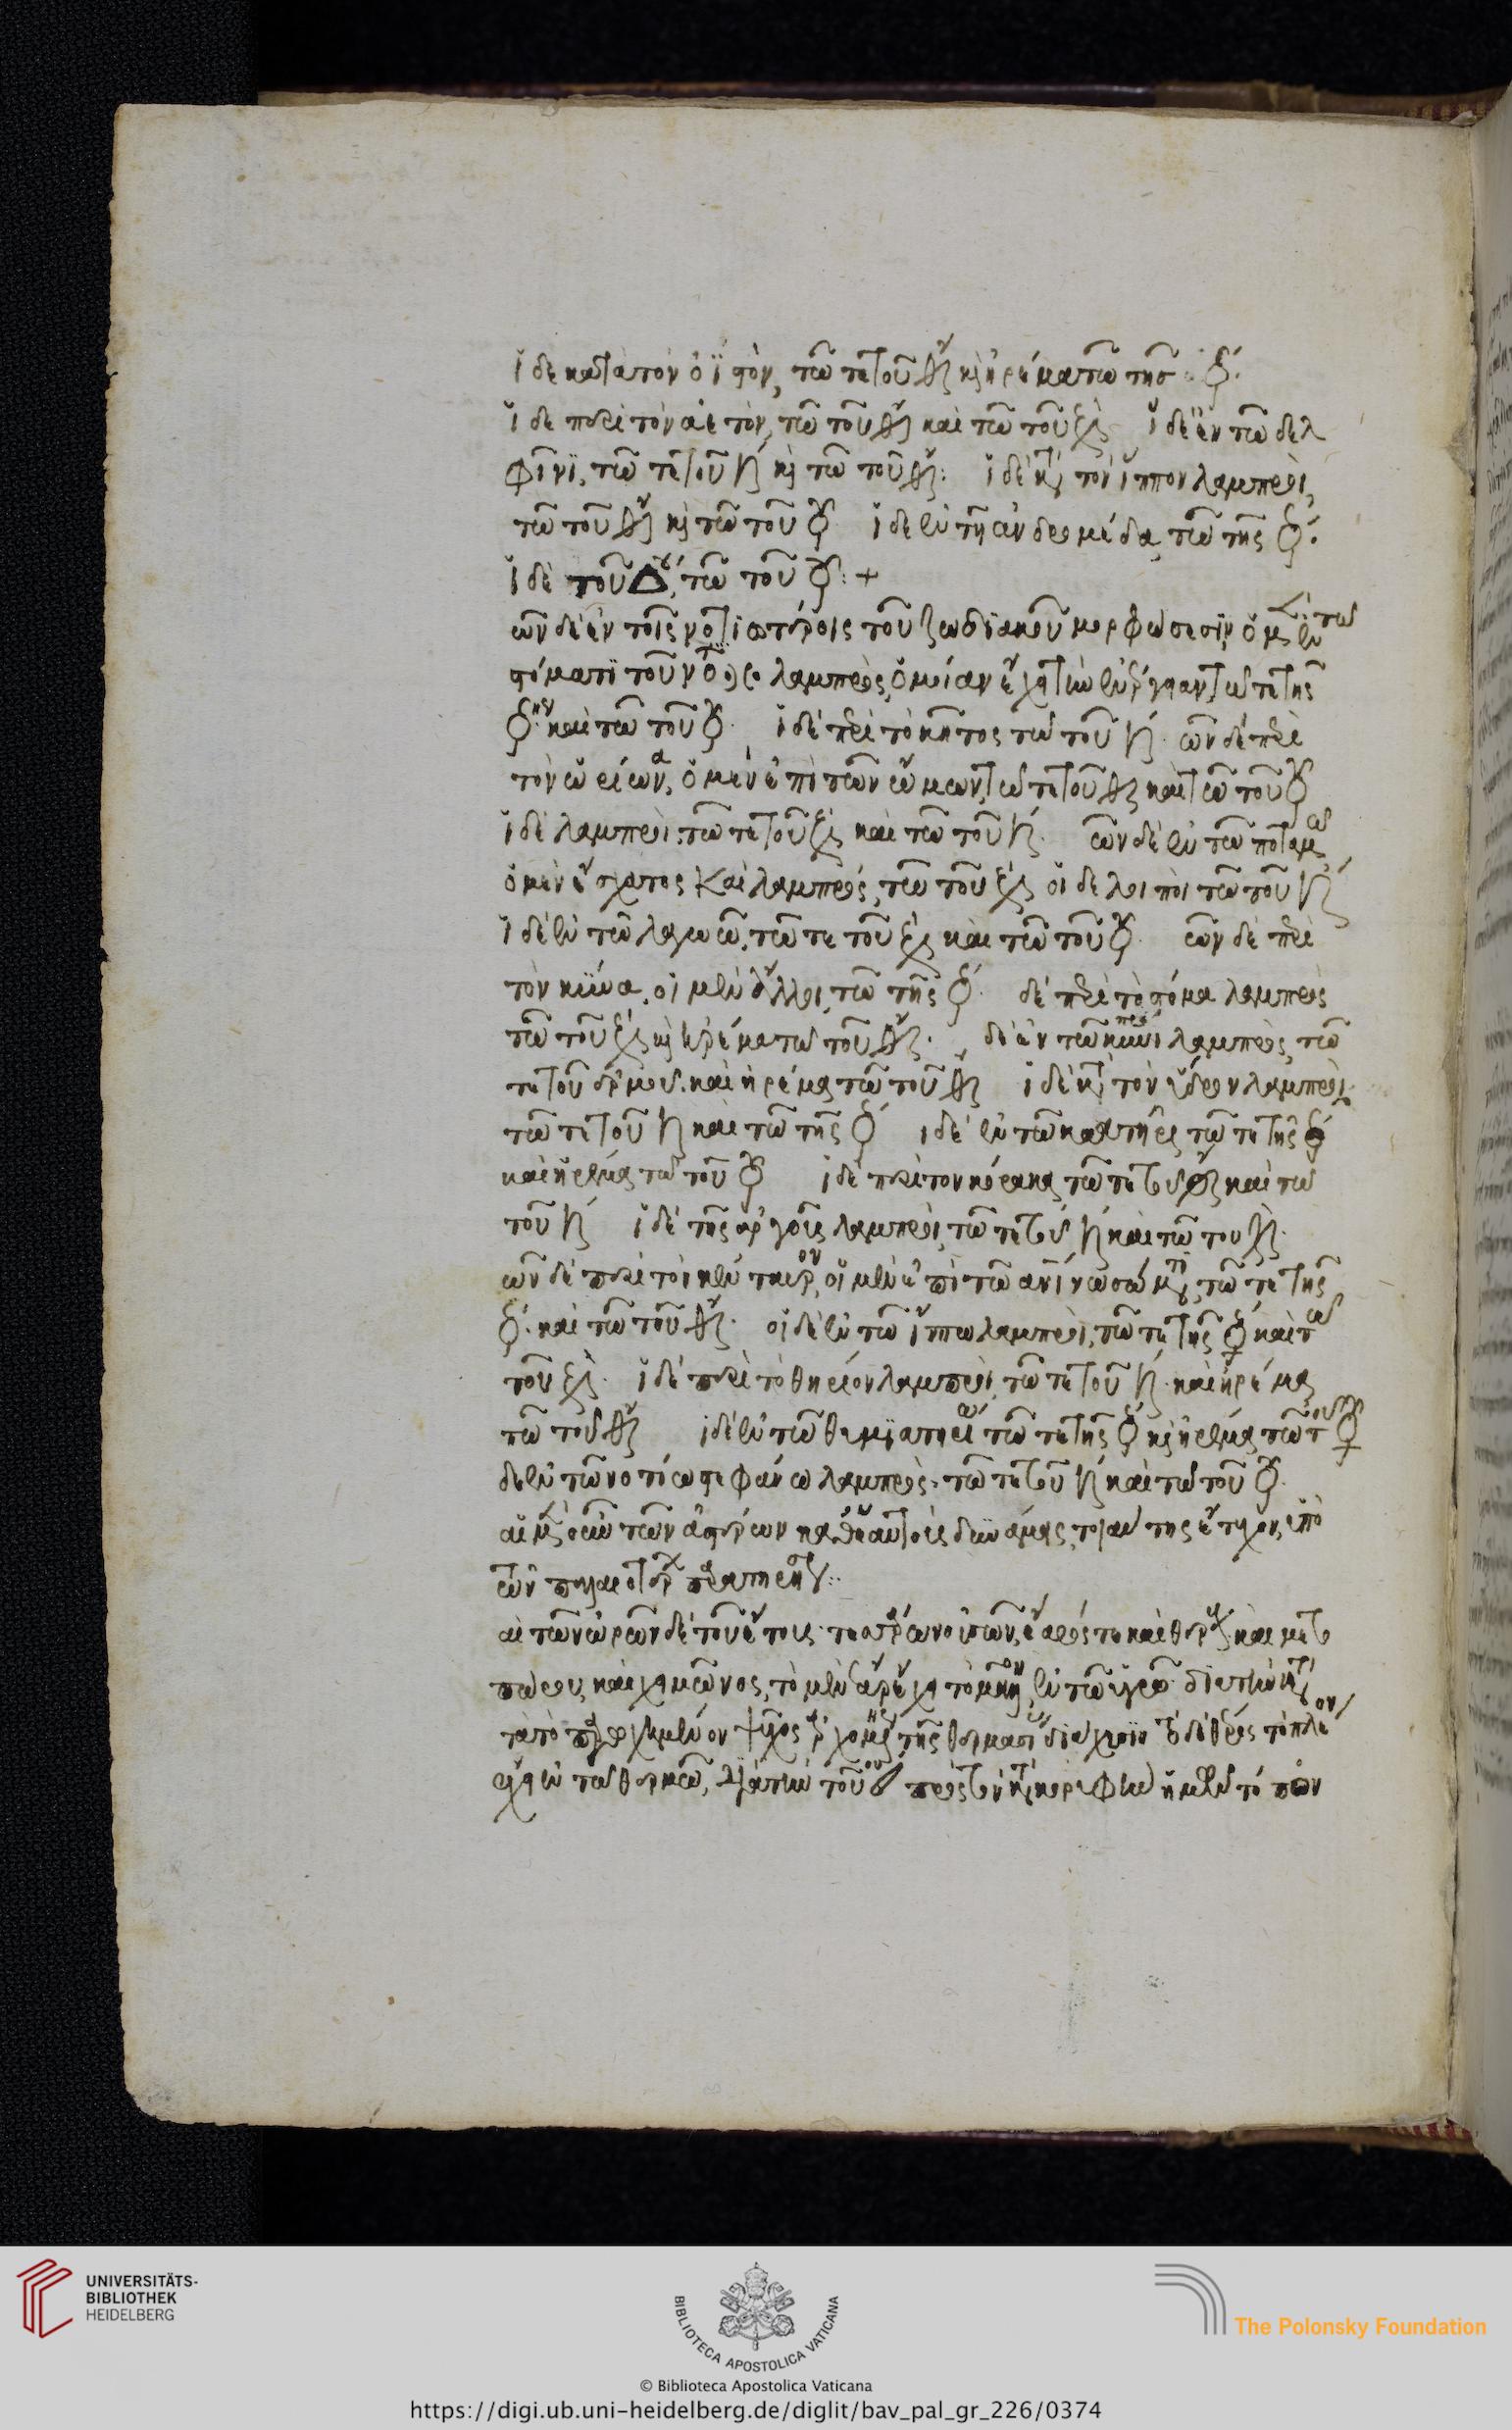 ἱ δὲ κατὰ τὸν ὀϊστὸν, τῶ τε τοῦ ♂ κ(αὶ) ἠρέμα τῶ τῆς ♀.
ἱ δὲ περὶ τὸν ἀετὸν, τῶ τοῦ ♂ καὶ τῶ τοῦ ♃ ἱ δὲ ἐν τῶ δελ
φῖνι, τῶ τε τοῦ ♄ κ(αὶ) τῶ τοῦ ♂. ἱ δὲ κατὰ τὸν ἵππον λαμπροὶ,
τῶ τοῦ ♂ κ(αὶ) τῶ τοῦ ☿ ἱ δὲ ἐν τῆ ἀνδρομέδα, τῶ τῆς ♀.
ἱ δὲ τοῦ Δ, τῶ τοῦ ☿ :+
ῶν δὲ ἐν τοῖς νοτιωτέροις τοῦ ζωδιακοῦ μορφώσεσιν, ὁ μὲν ἐν τῶ
στόματι τοῦ νοτίου λαμπρὸς, ὁμοίαν ἔχει τὴν ἐνέργειαν τῶ τε τῆς
♀ καὶ τῶ τοῦ ☿. ἱ δὲ περὶ τὸ κῆτος τῶ τοῦ ♄. ῶν δὲ περὶ
τὸν ὠρίωνα, ὁ μὲν ἐπὶ τῶν ὤμων, τῶ τε τοῦ ♂ καὶ τῶ τοῦ ☿
ἱ δὲ λαμπροὶ, τῶ τε τοῦ ♃ καὶ τῶ τοῦ ♄. ῶν δὲ ἐν τῶ ποταμῶ
ὁ μὲν ἔσχατος καὶ λαμπρός, τῶ τοῦ ♃ οἱ δὲ λοιποὶ τῶ τοῦ ♄
ἱ δὲ ἐν τῶ λαγωῶ, τῶ τε τοῦ ♄ καὶ τῶ τοῦ ☿. ῶν δὲ περὶ
τὸν κύνα, οἱ μὲν ἄλλοι, τῶ τῆς ♀. δὲ περὶ τὸ στόμα λαμπρὸς
τῶ τοῦ ♃ κ(αὶ) ἠρέμα τῶ τοῦ ♂. δὲ ἐν τῶ προκυνὶ λαμπρὸς, τῶ
τε τοῦ ἑρμοῦ. καὶ ἠρέμα τῶ τοῦ ♂ ἱ δὲ κατὰ τὸν ὕδρον λαμπροὶ
τῶ τε τοῦ ♄ καὶ τῶ τῆς ♀ ἱ δὲ ἐν τῶ κρατῆρι τῶ τε τῆς ♀
καὶ ἠρέμα τῶ τοῦ ☿ ἱ δὲ περὶ τὸν κόρακα τῶ τε τοῦ ♂ καὶ τῶ
τοῦ ♄ ἱ δὲ τῆς ἀργοῦς λαμπροὶ, τῶ τε τοῦ ♄ καὶ τῶ τοῦ ♃.
ῶν δὲ περὶ τὸν κένταυρον, οἱ μὲν ἐπὶ τῶ ἀνθρωπίνω σώματι, τῶ τε τῆς
♀. καὶ τῶ τοῦ ♂. οἱ δὲ ἐν τῶ ἵππω λαμπροὶ, τῶ τε τῆς ♀ καὶ τῶ
τοῦ ♃. ἱ δὲ περὶ τὸ θηρίον λαμπροὶ, τῶ τε τοῦ ♄. καὶ ἠρέμα
τῶ τοῦ ♂ ἱ δὲ ἐν τῶ θυμιατηρίω τῶ τε τῆς ♀ κ(αὶ) ἠρέμα τῶ τοῦ ☿
δὲ ἐν τῶ νοτίω στεφάνω λαμπρὸς, τῶ τε τοῦ ♄ καὶ τῶ τοῦ ☿.
αἱ μὲν οὖν τῶν ἀστέρων καθ' ἑαυτοὺς δυνάμεις, τοιαύτης ἔτυχον, ὑπὸ
τῶν παλαιοτέρων παρατηρήσεως:
αἱ τῶν ὡρῶν δὲ τοῦ ἔτους τεσσάρων οὐσῶν, ἔαρός τε καὶ θέρους, καὶ μετο
πώρου, καὶ χειμῶνος, τὸ μὲν ἔαρ ἔχει τὸ μᾶλλον ἐν τῶ ὑγρῶ διὰ τὴν κατὰ
τὸ παρωχημένον ψῦχος ἀρχομένης τῆς θερμασίας διάχυσιν τὸ δὲ θέρος τὸ πλέον
ἔχει ἐν τῶ θερμῶ, διὰ τὴν τοῦ ☉ πρὸς τὸν κατὰ κορυφὴν ἡμῶν τόπον